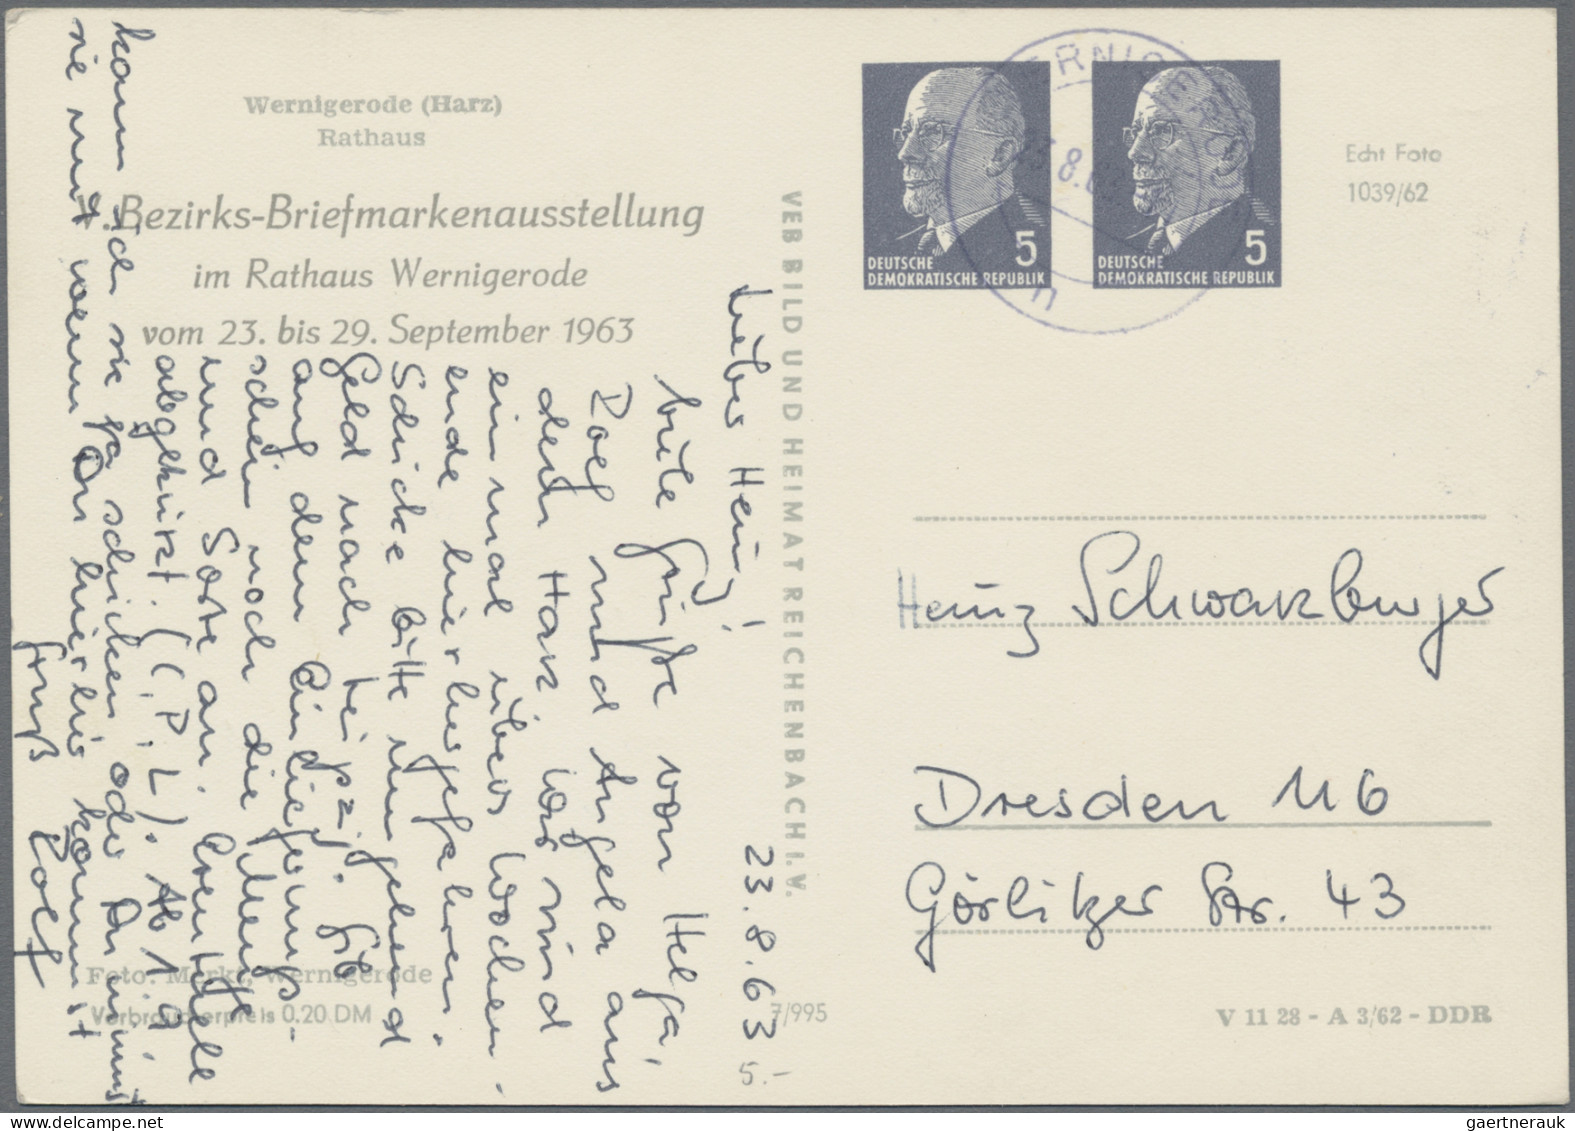 Wernigerode (Harz)
Rathaus
Bezirks-Briefmarkenausstellung
im Rathaus Wernigerode
vom 23. bis 29. September 1963
VEB BILD UND HEIMAT REICHENBACH I. V.
DEUTSCHE
DEMOKRATISCHE REPUBLIK
5
DEUTSCHE
DEMOKRATISCHE REPUBLIK
5
Echt Foto
1039/62
23.8.63
Lieber Heinz!
Gute Grüße von Helga,
Rolf und Angela aus
dem Harz. Wir sind
einmal übers Wochen-
ende hierhergefahren.
Schicke bitte umgehend
Geld nach Leipzig. Gib
auf dem Einlieferungs-
schein noch die Menge
und Sorte an. Eventuell
abgekürzt. (C. P. L). Ab 1.9
kann ich sie ja schicken oder Du nimmst
sie mit wenn Du hierher kommst
Gruß Rolf
Heinz Schwarzburger
Dresden N 6
Görlitzer Str. 43
Foto: Merkr, Wernigerode
Verbraucherpreis 0.20 DM
7/995
5.-
V 11 28 - A 3/62 - DDR
gaertnerauk